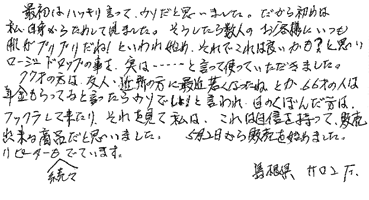 最初はハッキリ言って、ウソだと思いました。だから初めは
私自身からためして見ました。そうしたら数人のお客様にいつも
肌がプリプリだわ!といわれ始め、それでこれは良いかも?と思い
ローヤルドタックの事を、実は……と言って使っていただきました。
クスオの方は、友人・近所の方に最近若くなったね とか、66才の人は
年金もらってると言ったらウソでしょ!と言われ、目のくぼんだ方は、
フックラして来たり、それを見て私は、これは自信を持って、販売
出来る商品だと思いました。 5月2日から販売を始めました。
リピーターも 続々 でています。
島根県 サロン F.